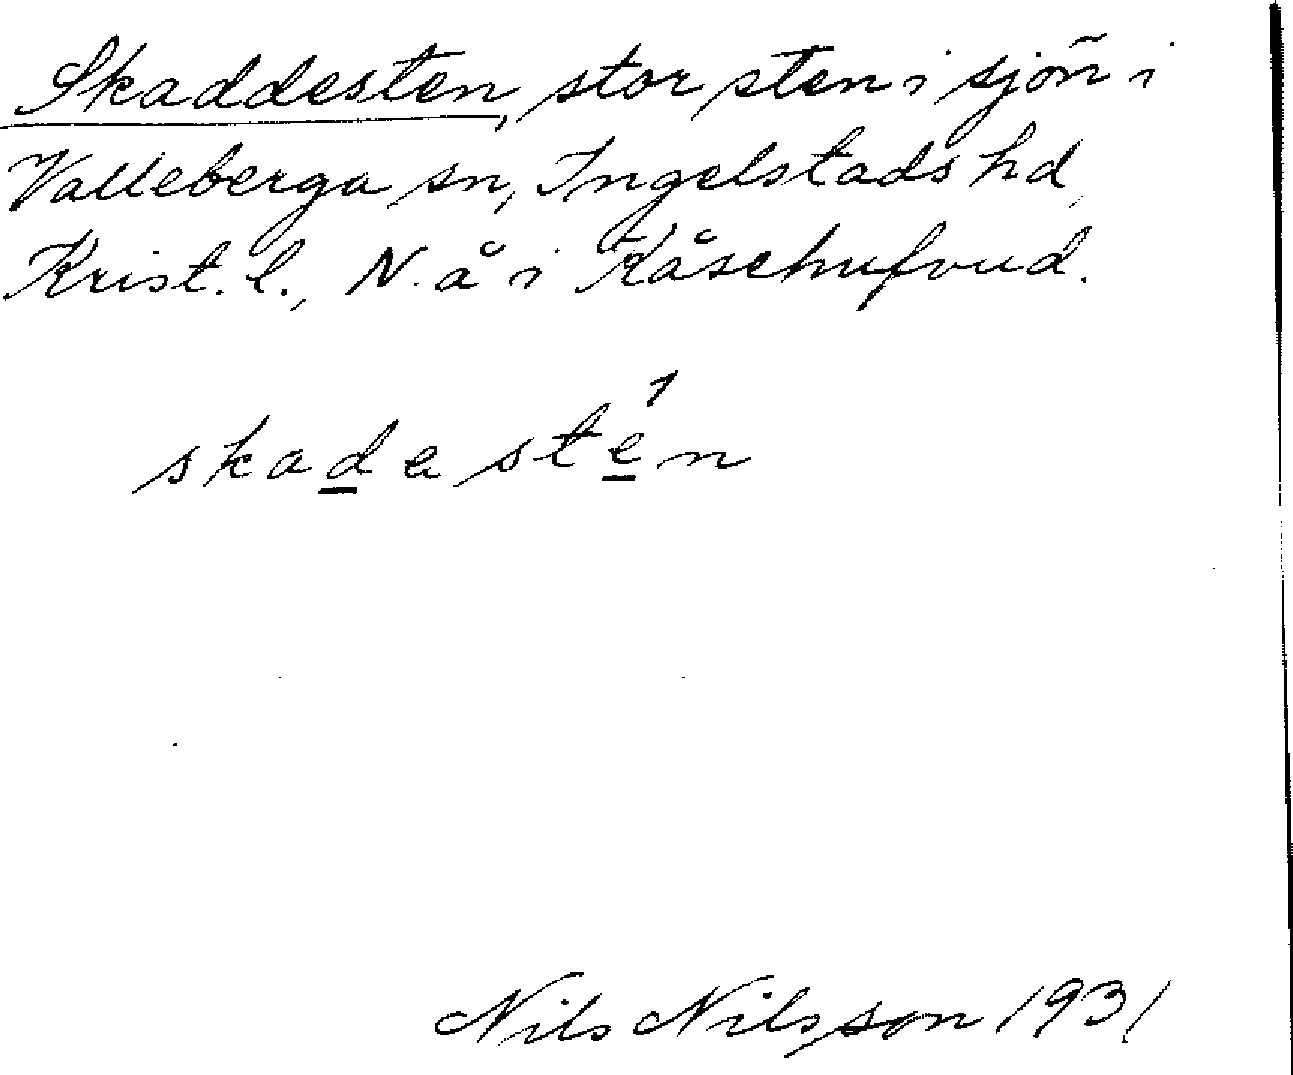 Skaddesten, stor sten i sjön i
Valleberga sn, Ingelstads hd,
Krist. l., N. å i Kåsehufvud.
skadestén
Nils Nilsson 1931